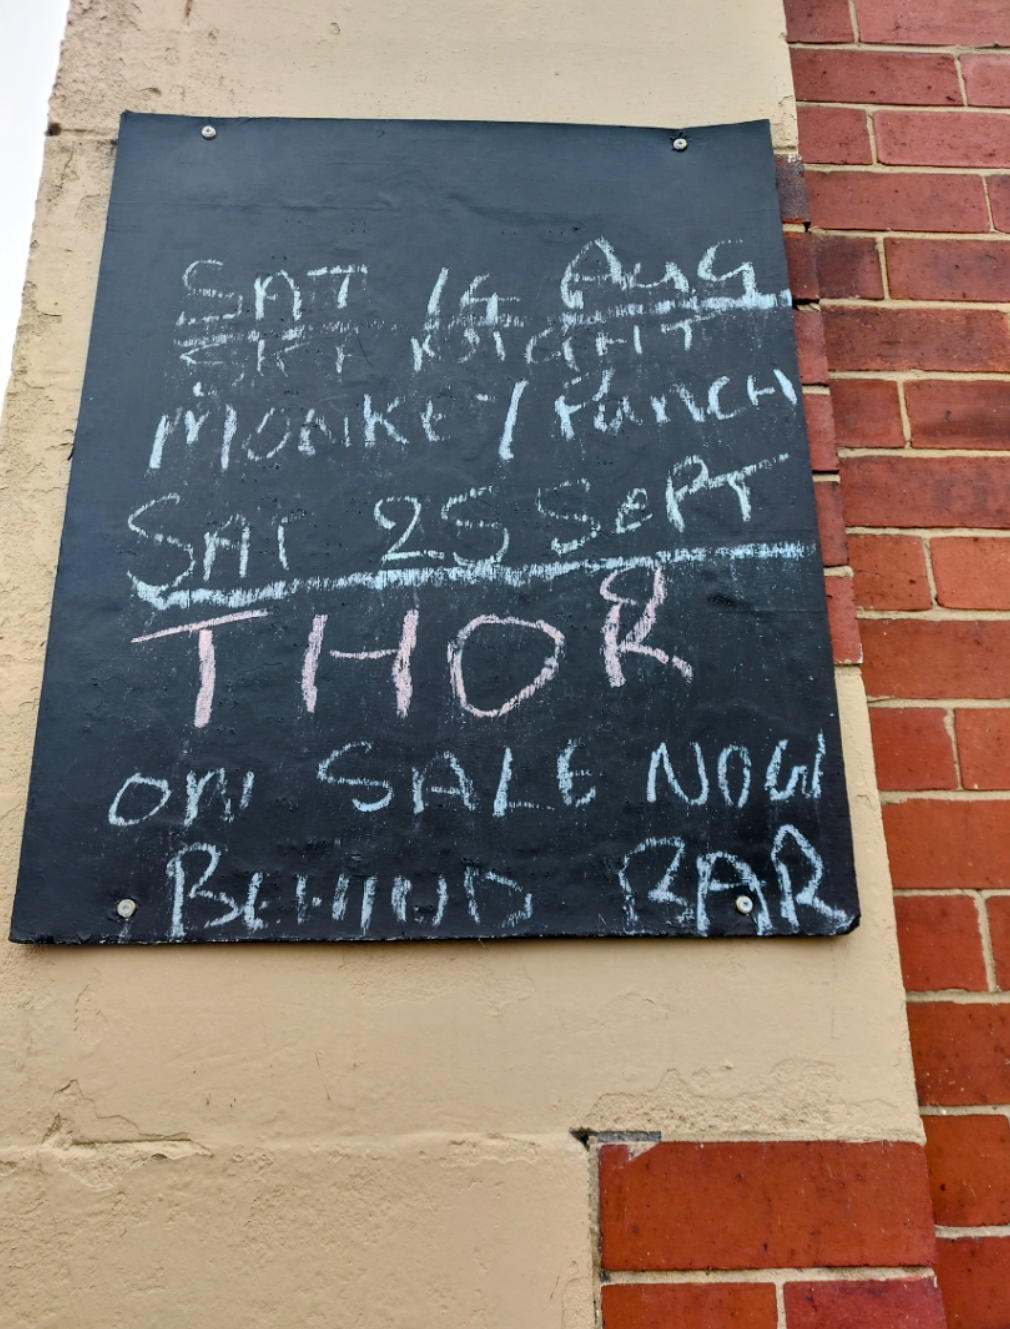 SAT 14 AUG
SKY KNIGHT
MONKEY PUNCH
SAT 25 SEPT
THOR
ON SALE NOW
BEHIND BAR